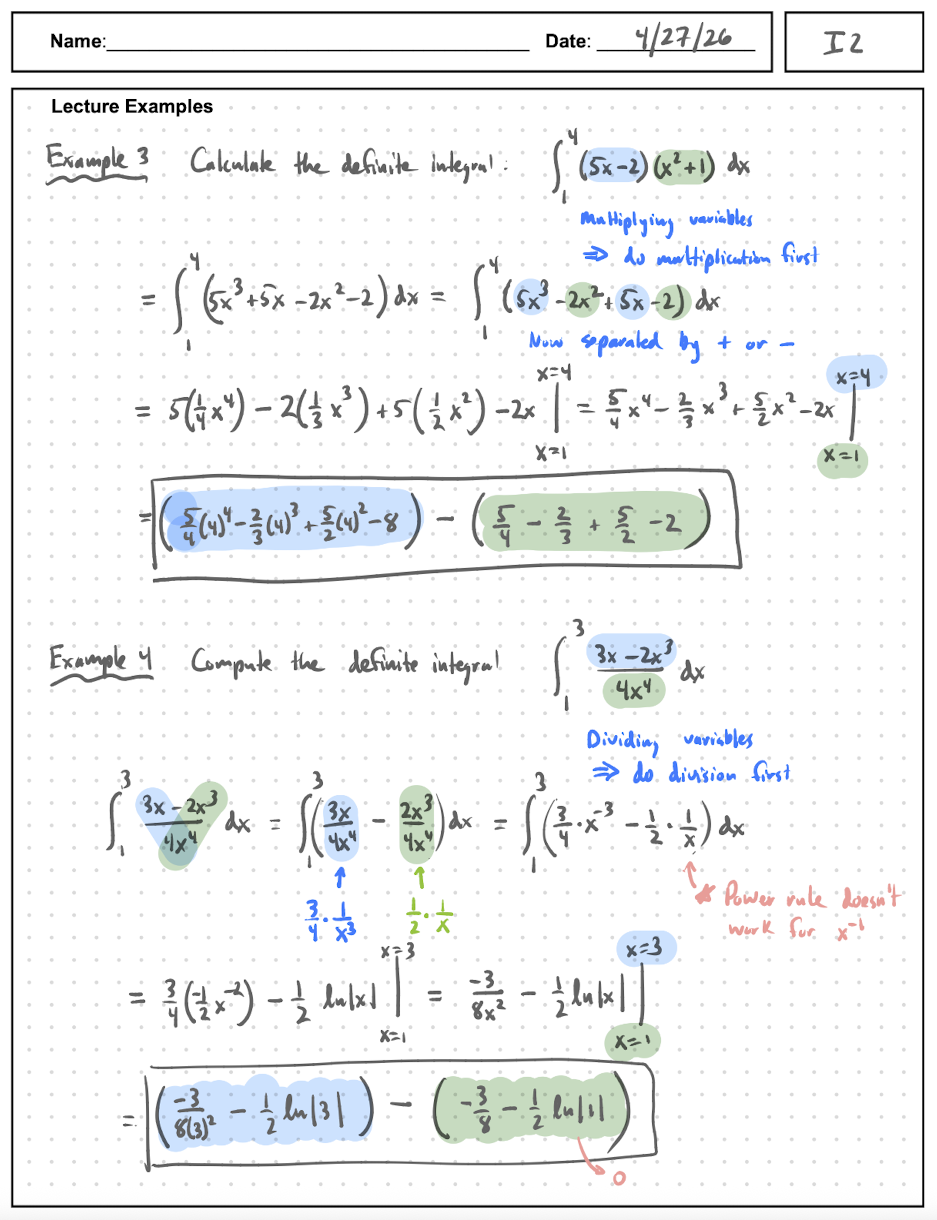 Name: Date: 4/27/26 I2
Lecture Examples
Example 3 Calculate the definite integral: ∫₁⁴ (5x-2)(x²+1) dx
Multiplying variables
⇒ do multiplication first
= ∫₁⁴ (5x³+5x-2x²-2) dx = ∫₁⁴ (5x³-2x²+5x-2) dx
Now separated by + or -
= 5(1/4 x⁴) - 2(1/3 x³) + 5(1/2 x²) - 2x |_{x=1}^{x=4} = 5/4 x⁴ - 2/3 x³ + 5/2 x² - 2x |_{x=1}^{x=4}
= (5/4 (4)⁴ - 2/3 (4)³ + 5/2 (4)² - 8) - (5/4 - 2/3 + 5/2 - 2)
Example 4 Compute the definite integral ∫₁³ (3x-2x³)/(4x⁴) dx
Dividing variables
⇒ do division first
∫₁³ (3x-2x³)/(4x⁴) dx = ∫₁³ (3x/4x⁴ - 2x³/4x⁴) dx = ∫₁³ (3/4 · x⁻³ - 1/2 · 1/x) dx
↑ 3/4 · 1/x³ ↑ 1/2 · 1/x
* Power rule doesn't
work for x⁻¹
= 3/4 (-1/2 x⁻²) - 1/2 ln|x| |_{x=1}^{x=3} = -3/8x² - 1/2 ln|x| |_{x=1}^{x=3}
= (-3/8(3)² - 1/2 ln|3|) - (-3/8 - 1/2 ln|1|)
→ 0